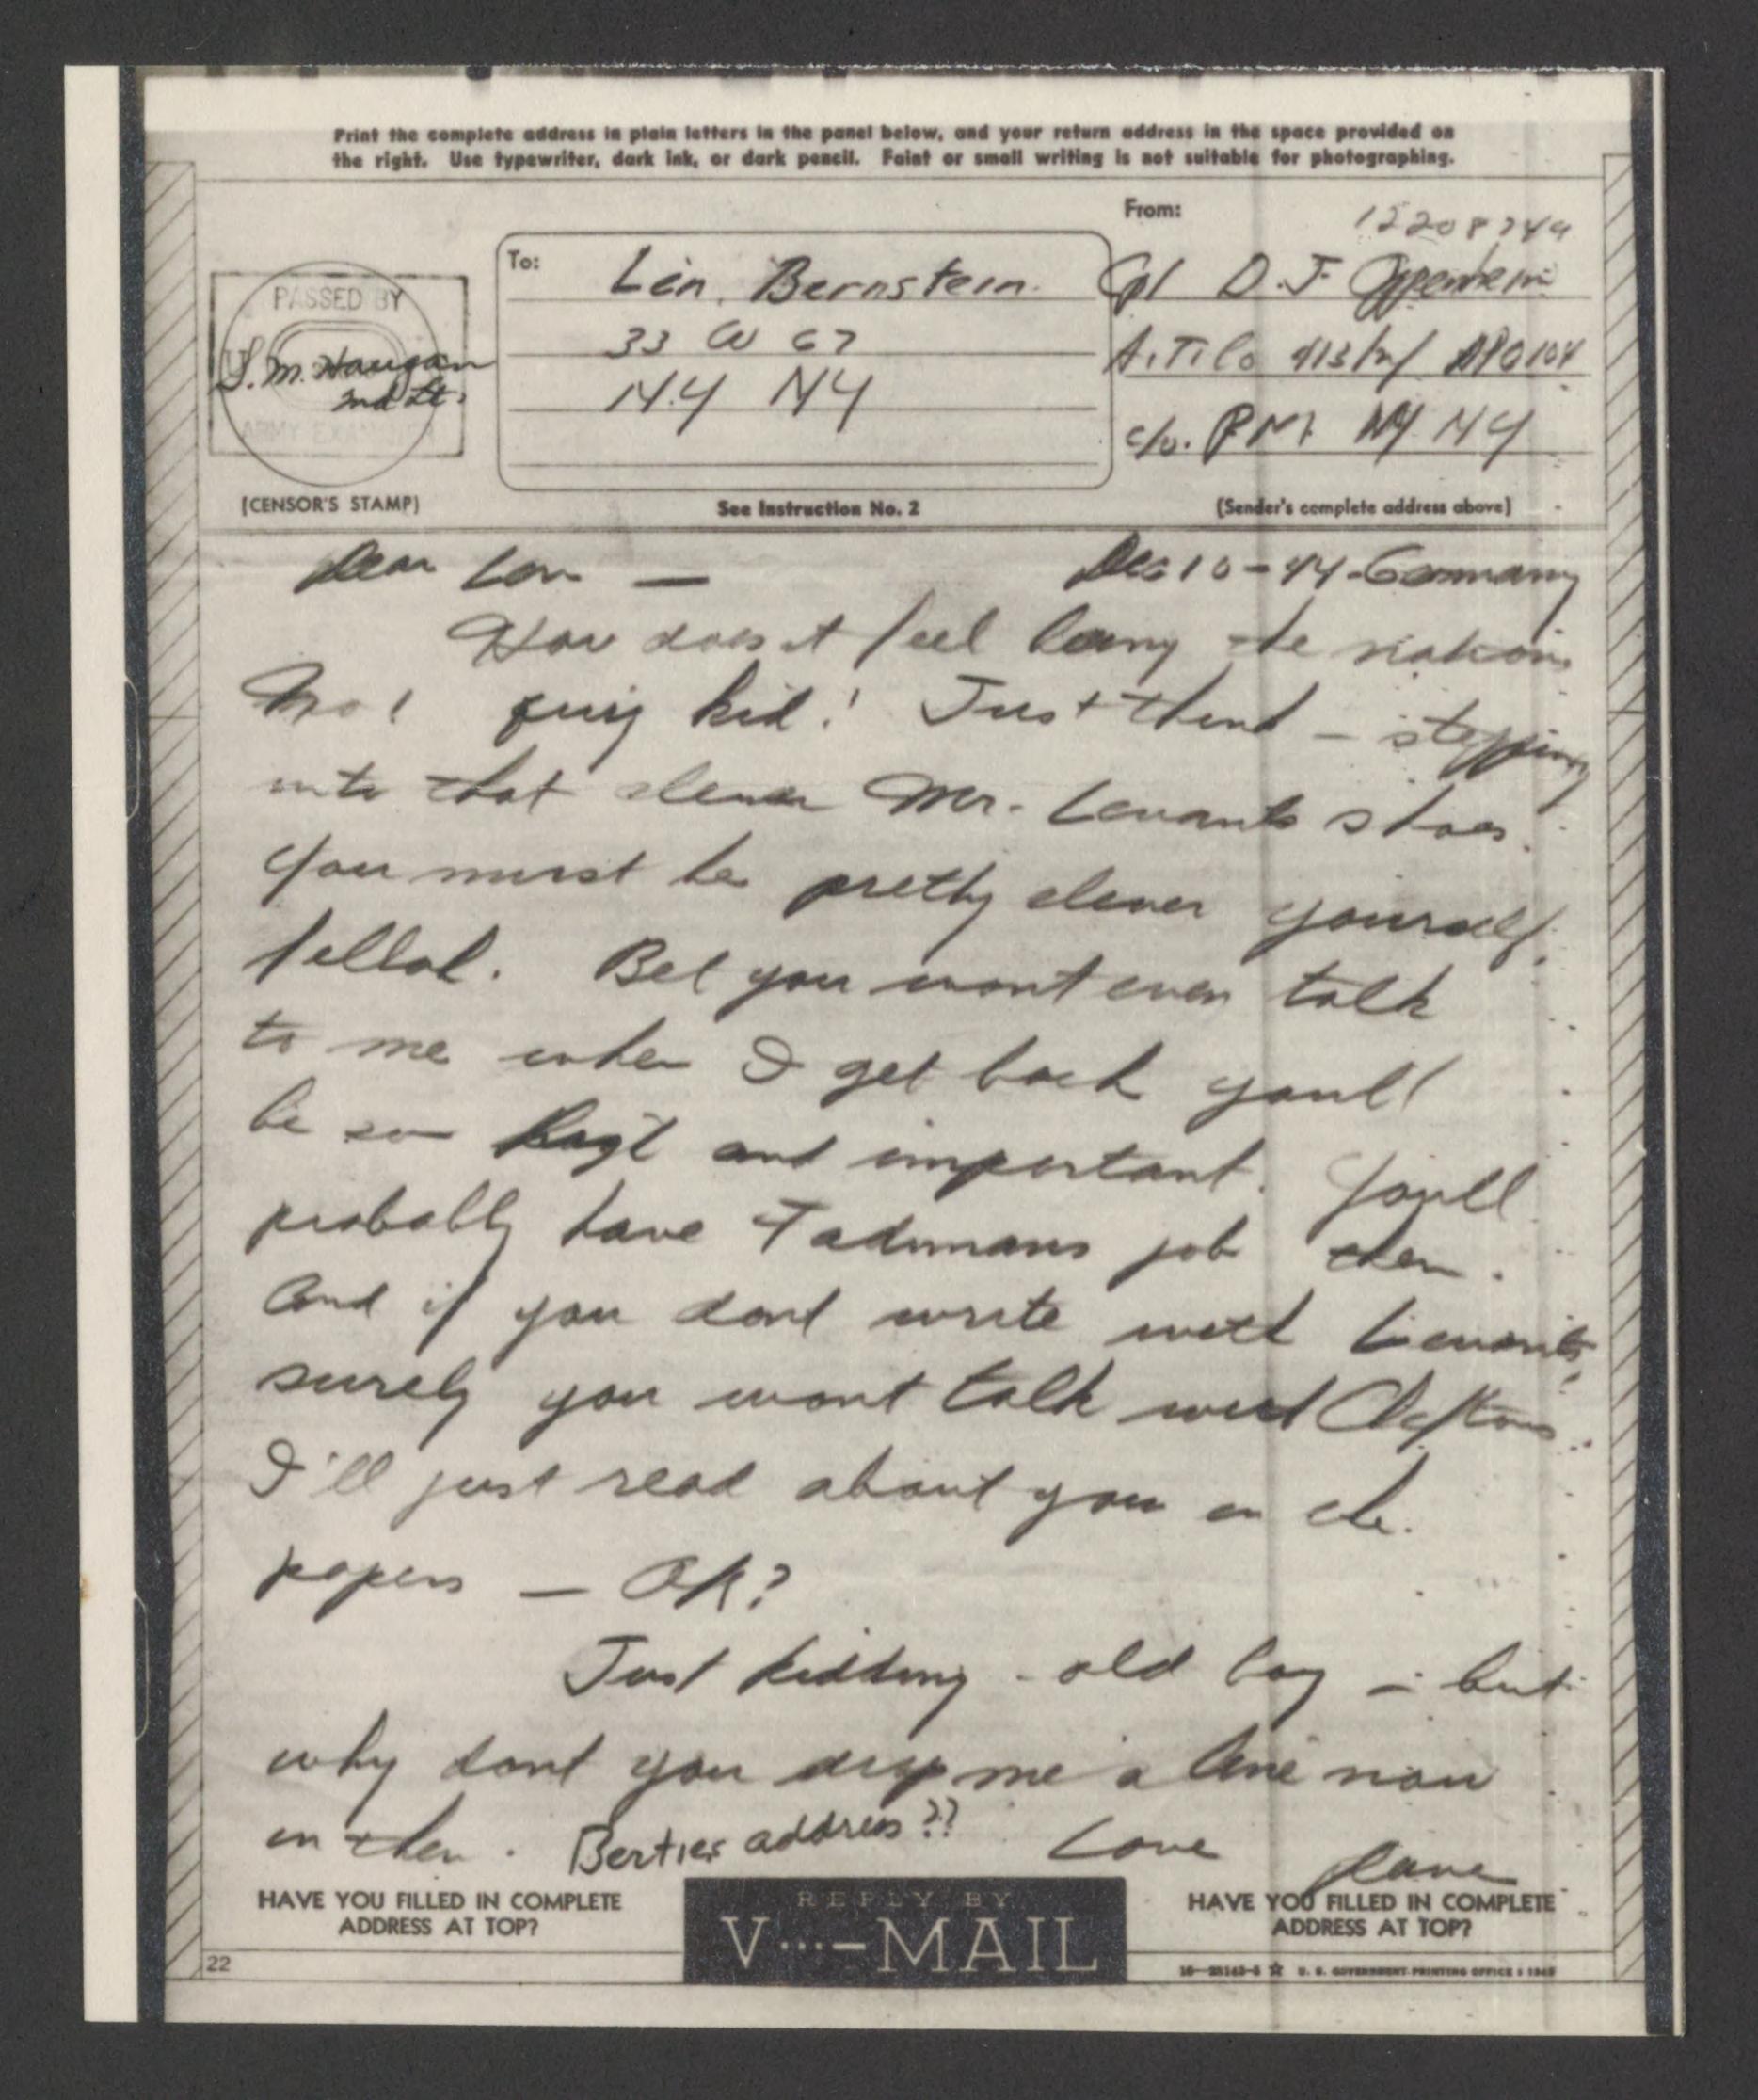 Print the complete address in plain letters in the panel below, and your return address in the space provided on
the right. Use typewriter, dark ink, or dark pencil. Faint or small writing is not suitable for photographing.
From:
To:
Len. Bernstein.
33 W 67
N.Y NY
Cpl D. J. Oppenheim
A.T. Co 413 Inf APO 104
c/o. P.M. NY NY
PASSED BY
ARMY EXAMINER
2nd Lt.
(CENSOR'S STAMP)
See Instruction No. 2
(Sender's complete address above)
Dear Len — Dec 10 - 44 - Germany
How does it feel being the nations
No 1 quiz kid! Just think — stepping
into that clever Mr. Levants shoes.
You must be pretty clever yourself,
fellal. Bet you wont even talk
to me when I get back youll
be so and important. Youll
probably have Fadimans job then.
And if you dont write with Levants,
surely you wont talk with Cliftons.
I'll just read about you in the.
papers — OK?
Just kidding - old boy — but
why dont you drop me a line now
en then. Berties address?? Love
Dave
HAVE YOU FILLED IN COMPLETE
ADDRESS AT TOP?
REPLY BY
V···—MAIL
HAVE YOU FILLED IN COMPLETE
ADDRESS AT TOP?
22
U. S. GOVERNMENT PRINTING OFFICE